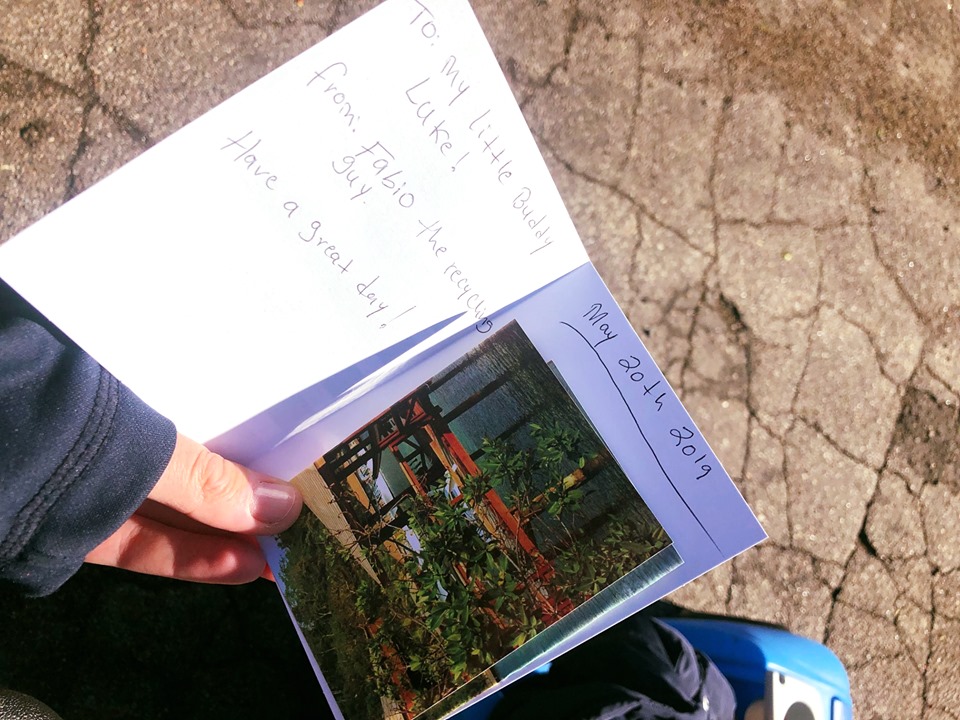 To: My little Buddy
Luke!
from: Fabio the recycling
guy.
Have a great day!
May 20th 2019